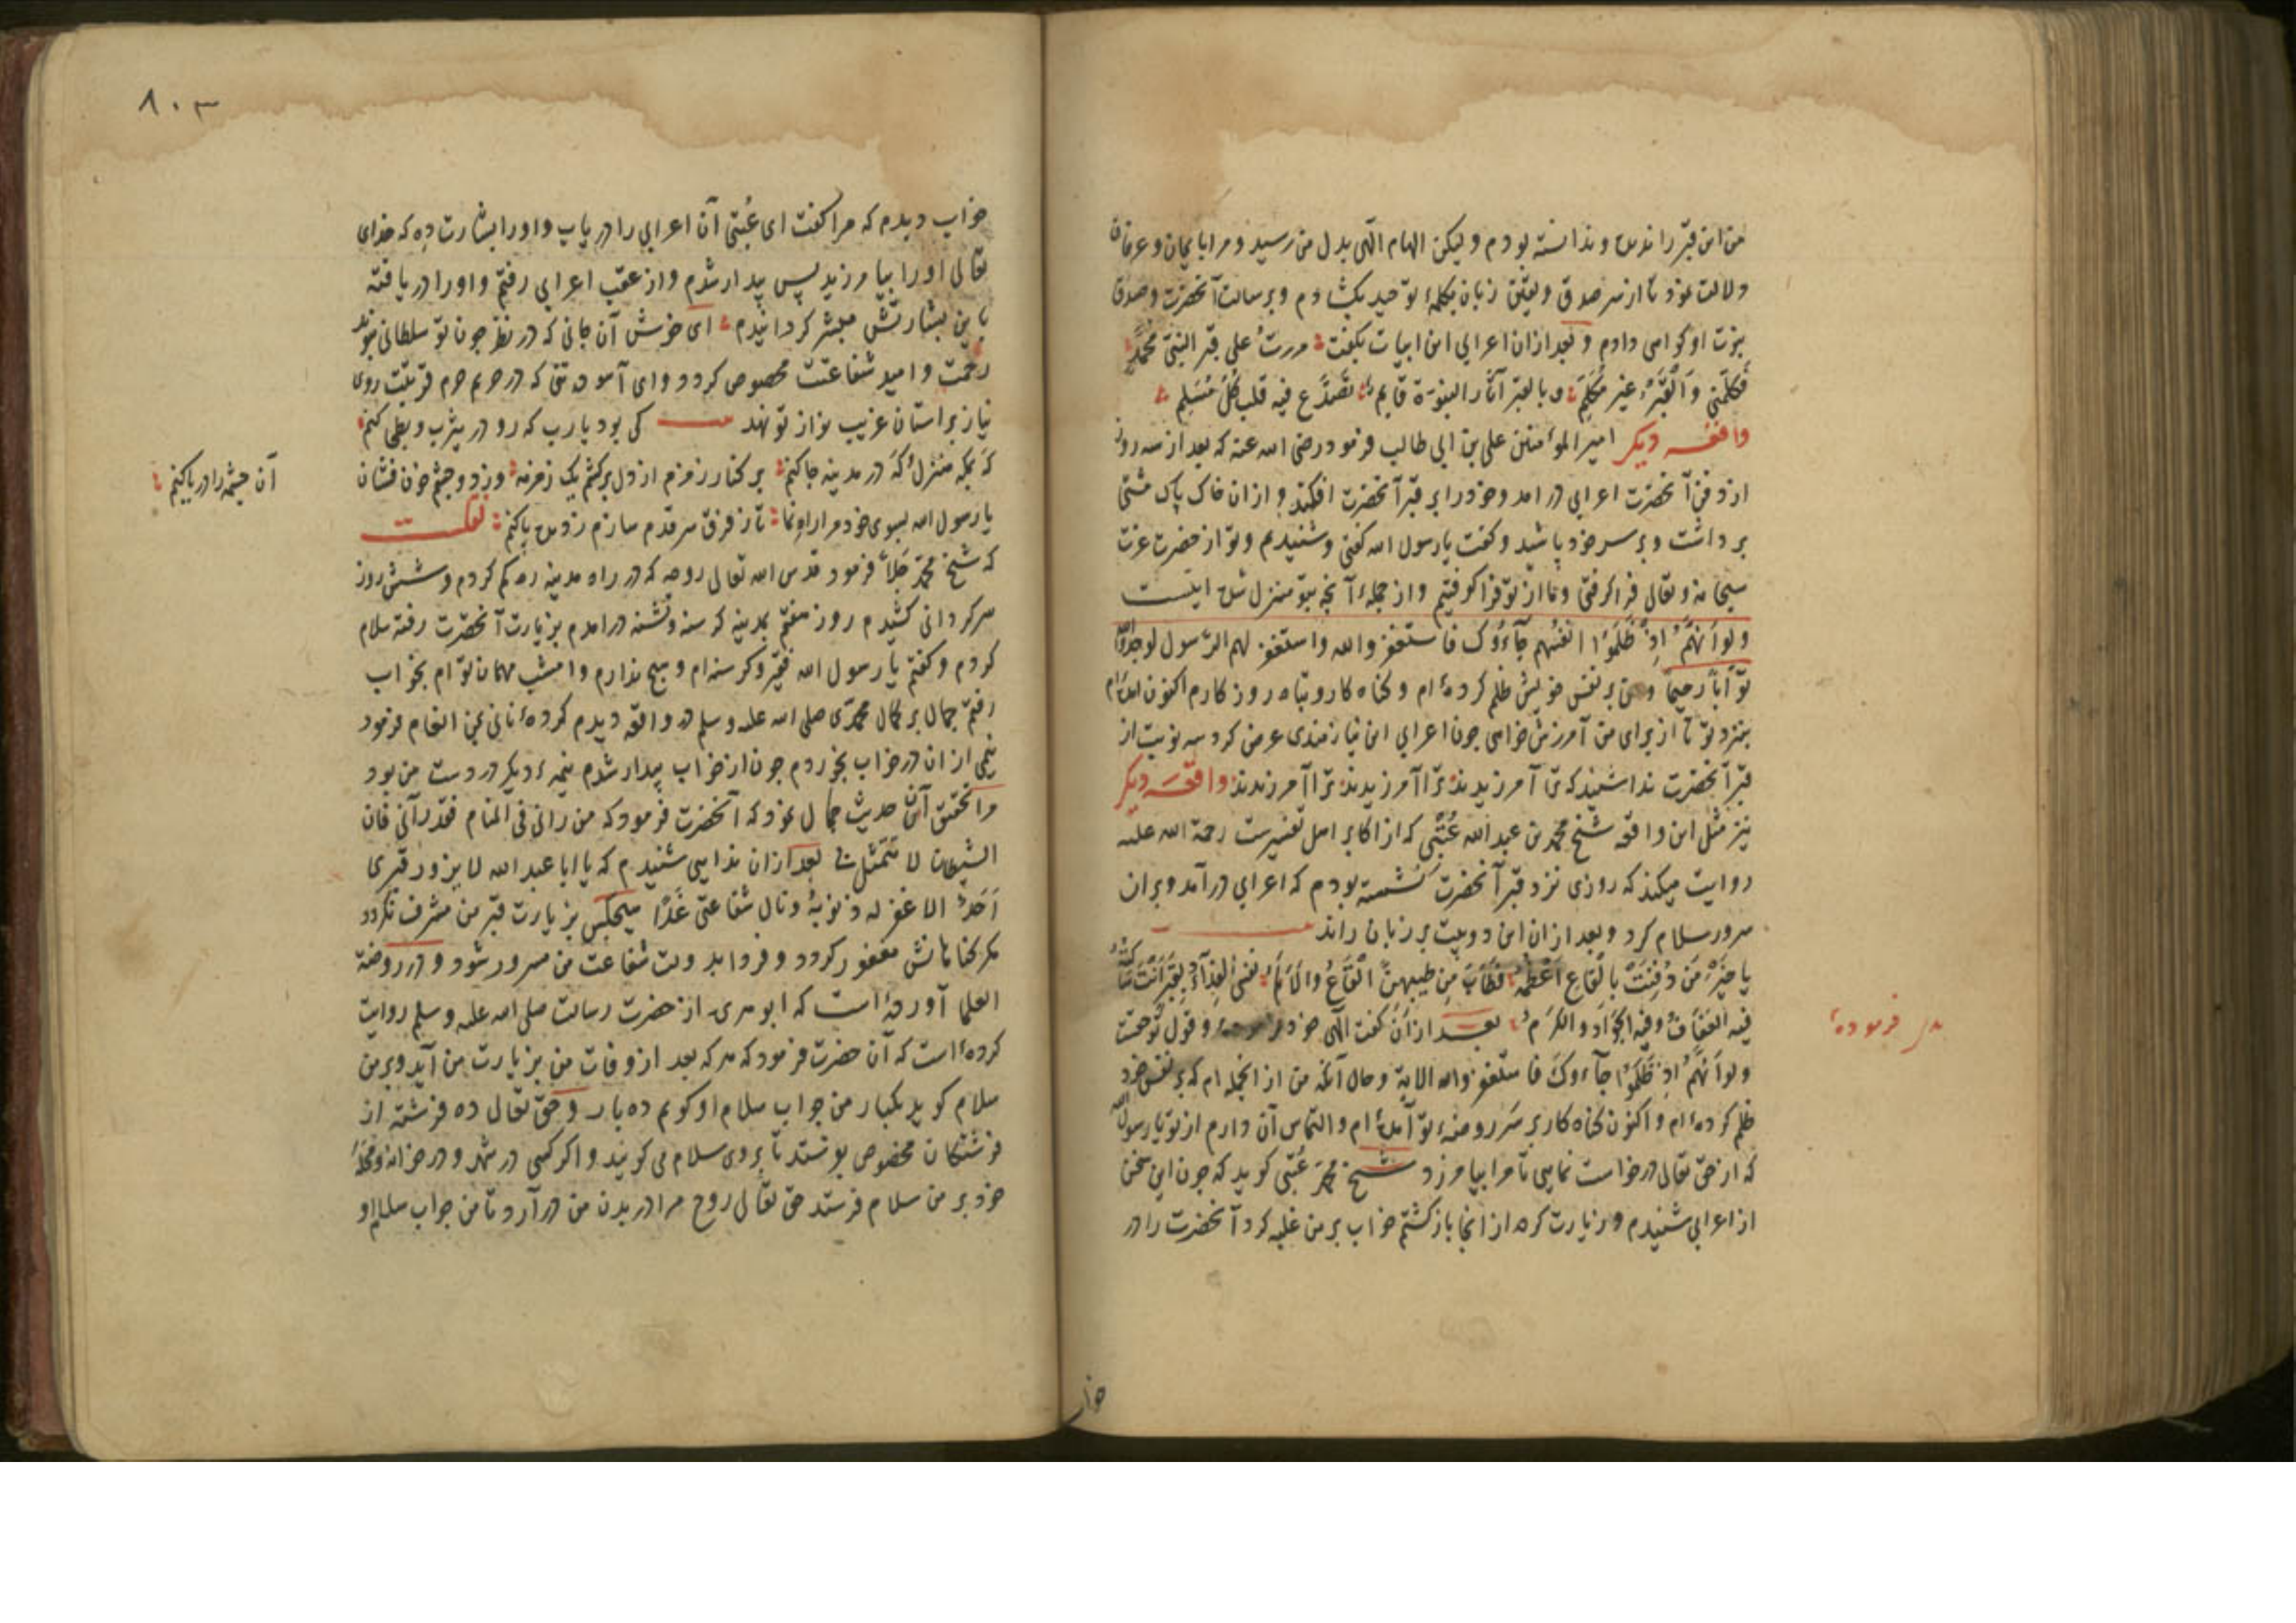 من این قبر را ندیده و ندانسته بودم ولیکن الهام الهی بدل من رسید و مرا بایمان و عرفان
دلالت نمود تا از سر صدق و یقین زبان بکلمهٔ توحید بکشادم و برسالت آنحضرت و صدق
نبوت او کواهی دادم و بعد ازان اعرابی این ابیات بکفت مررتُ علی قبر النبیّ محمّدٍ
فکلّمنی وَالْقَبْرُ غیر مُکَلِّمِ و بالقبر آثار النبوّة قایم تصدّع فیه قلب کُلّ مُسْلِم
واقعه دیکر امیر المؤمنین علی بن ابی طالب فرمود رضی الله عنه که بعد از سه روز
از دفن آنحضرت اعرابی در امد و خود را بر قبر آنحضرت افکند و ازان خاک پاک مشتی
برداشت و بر سر خود پاشید و کفت یا رسول الله کفتی و شنیدیم و تو از حضرت عزت
سبحانه و تعالی فرا کرفتی و ما از تو فرا کرفتیم و از جملهٔ آنچه بتو منزل شد اینست
ولو اَنَّهُمْ اِذْ ظَلَمُوْا انفسهم جَآءُوْک فاستغفروا الله و استغفر لهم الرّسول لوجدوا الله
توّاباً رحیماً و من بر نفس خویش ظلم کرده‌ام و کناه کار و تباه روزکارم اکنون امده‌ام
بنزد تو تا از برای من آمرزش خواهی چون اعرابی این نیازمندی عرض کرد سه نوبت از
قبر آنحضرت ندا شنید که ترا آمرزیدند ترا آمرزیدند ترا آمرزیدند واقعه دیکر
نیز مثل این واقعه شیخ محمد بن عبد الله عُتْبی که از اکابر اهل تفسیرست رحمة الله علیه
روایت میکند که روزی نزد قبر آنحضرت نشسته بودم که اعرابی درآمد و بران
سرور سلام کرد و بعد ازان این دو بیت بر زبان راند
یا خَیْرَ مَن دُفِنَتْ بالْقاعِ اَعْظُمُه فَطَابَ مِن طیبهنّ الْقَاعُ والاَکَمُ نفسی الفِدآءُ لِقَبْرٍ اَنْتَ ساکنُه
فیه العَفَافُ وفیه الجُوْدُ والکَرَمُ بعد ازان کفت الهی خود فرموده وقول توحقست
ولو اَنَّهُمْ اِذْ ظَلَمُوْا جآءوک فاستغفروا الله الایة و حال آنکه من از انجمله ام که بر نفس خود
ظلم کرده‌ام و اکنون کناه کار بر سَر روضهٔ تو آمده‌ام و التماس آن دارم از تو یا رسول الله
که از حق تعالی درخواست نمایی تا مرا بیامرزد شیخ محمّد عُتبی کوید که چون این سخن
از اعرابی شنیدم و زیارت کرده از انجا باز کشتم خواب بر من غلبه کرد آنحضرت را در
فرموده
خواب
٨٠٣
خواب دیدم که مرا کفت ای عُتبی آن اعرابی را دریاب و او را بشارت ده که خدای
تعالی او را بیامرزید پس بیدار شدم و از عقب اعرابی رفتم و او را دریافته
باین بشارتش مبشر کردانیدم ای خوش آن جانی که در نظر چون تو سلطانی بنوید
رحمت و امید شفاعتت مخصوص کردد و ای آسوده تنی که در حریم حرم قربتت روی
نیاز بر استان غریب نواز تو نهد کی بود یارب که رو در یثرب و بطحی کنم
که بمکه منزل و که در مدینه جا کنم بر کنار زمزم از دل برکشم یک زمزمه وز دو چشم خون فشان
آن چشمه را دریا کنم
یا رسول الله بسوی خود مرا راهی نما تا ز فرق سر قدم سازم ز دیده پا کنم نقلست
که شیخ محمّد جَلّاء فرمود قدس الله تعالی روحه که در راه مدینه ره کم کردم و شش روز
سرکردانی کشیدم روز هفتم بمدینه کرسنه و تشنه درامدم بزیارت آنحضرت رفته سلام
کردم و کفتم یا رسول الله فقیر و کرسنه ام و هیچ ندارم و امشب مهمان تو ام بخواب
رفتم جمال بر کمال محمّدی صلی الله علیه وسلم در واقعه دیدم کردهٔ نانی بمن انعام فرمود
نیمی ازان در خواب بخوردم چون از خواب بیدار شدم نیمهٔ دیکر در دست من بود
مرا تحقیق آن حدیث جمال نمود که آنحضرت فرمود که من رانی فی المنام فقد رآنی فان
الشیطان لا یتمثّل بی بعد ازان ندایی شنیدم که یا ابا عبد الله لا یزور قبری
اَحَدٌ الا غفر له ذنوبهُ ونال شفاعتی غَدًا هیچکس بزیارت قبر من مشرف نکردد
مکر کناهانش مغفور کردد و فردا بدولت شفاعت من مسرور شود و در روضة
العلما آورده است که ابو هریره از حضرت رسالت صلی الله علیه وسلم روایت
کرده است که آن حضرت فرمود که هر که بعد از وفات من بزیارت من آید و بر من
سلام کوید یکبار من جواب سلام او کویم ده بار و حق تعالی ده فرشته از
فرشتکان مخصوص بوستد تا بر وی سلام می کویند و اکر کسی در شهر و در خانه و محلهٔ
خود بر من سلام فرستد حق تعالی روح مرا در بدن من درآرد تا من جواب سلام او